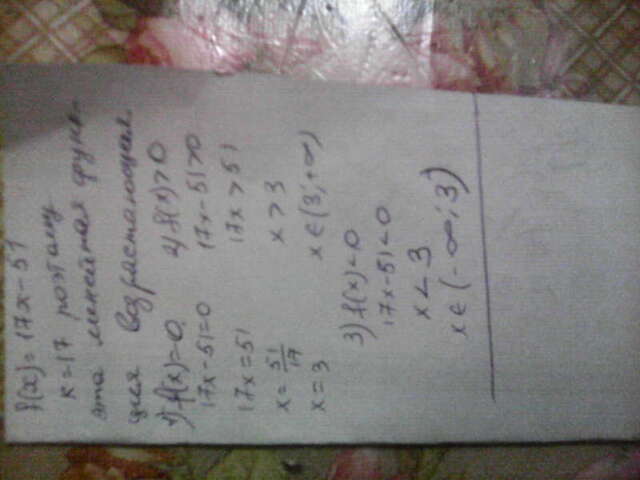 f(x) = 17x - 51
к = 17 поэтому
эта линейная функ-
ция возрастающая
1) f(x) = 0
17x - 51 = 0
17x = 51
x = 51/17
x = 3
2) f(x) > 0
17x - 51 > 0
17x > 51
x > 3
x ∈ (3; +∞)
3) f(x) < 0
17x - 51 < 0
x < 3
x ∈ (-∞; 3)